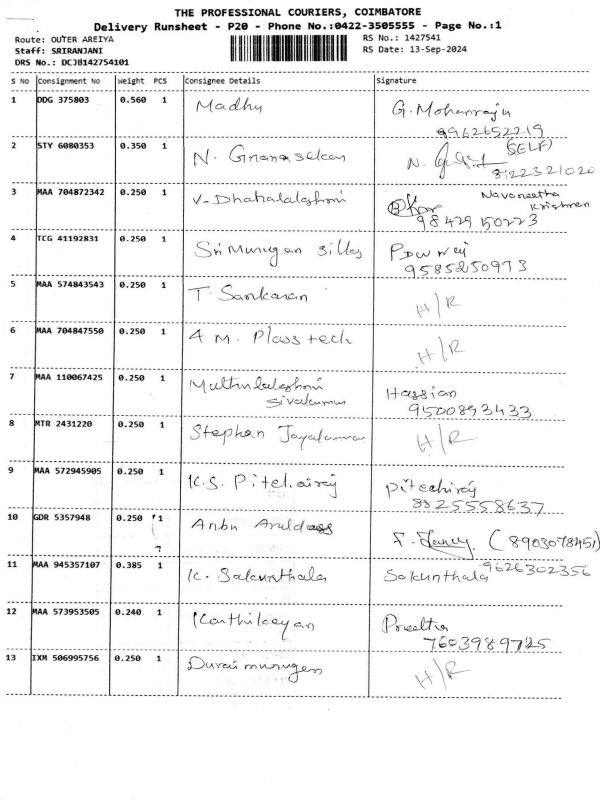 THE PROFESSIONAL COURIERS, COIMBATORE
Delivery Runsheet - P20 - Phone No.:0422-3505555 - Page No.:1
Route: OUTER AREIYA RS No.: 1427541
Staff: SRIRANJANI RS Date: 13-Sep-2024
DRS No.: DCJB142754101
S No Consignment No Weight PCS Consignee Details Signature
1 DDG 375803 0.560 1 Madhu G. Mohanraju
9962652219
2 STY 6080353 0.350 1 N. Gnanasekan N. (SELF)
8122321020
3 MAA 704872342 0.250 1 V-Dhatchalakshmi Navaneetha
Krishnan
9842950223
4 TCG 41192831 0.250 1 Sri Murugan Silks
9585250973
5 MAA 574843543 0.250 1 T. Sankaran H/R
6 MAA 704847550 0.250 1 A M. Plass tech H/R
7 MAA 110067425 0.250 1 Muthulakshmi Hassian
Sivakumar 9500893433
8 MTR 2431220 0.250 1 Stephan Jayakumar H/R
9 MAA 572945905 0.250 1 K.S. Pitchairaj Pitechiraj
8325558637
10 GDR 5357948 0.250 1 Anbu Aruldass F. (8903078451)
11 MAA 945357107 0.385 1 K. Sakunthala Sakunthala 9626302356
12 MAA 573953505 0.240 1 Karthikeyan Preetha
7603989725
13 IXM 506995756 0.250 1 Duraimurugan H/R